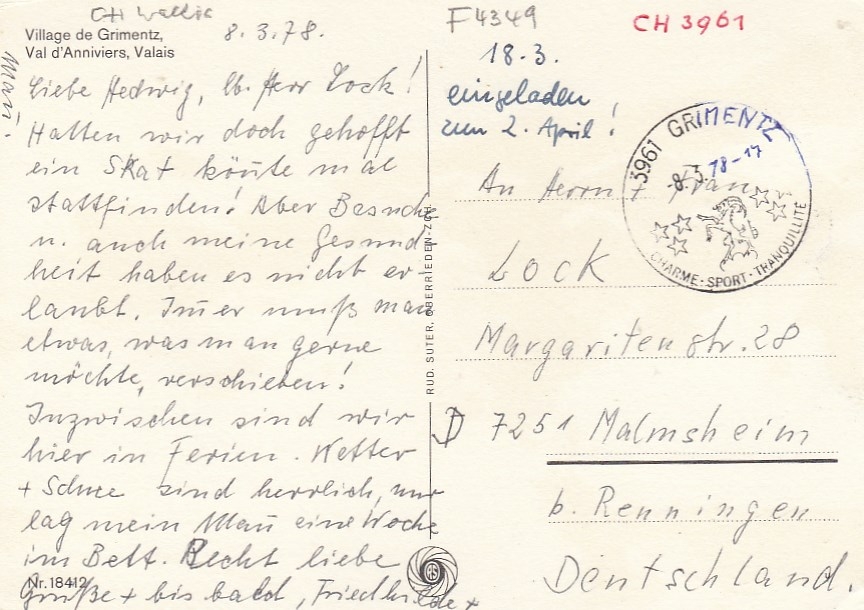 CH Wallis
Village de Grimentz,
Val d'Anniviers, Valais
8.3.78.
Liebe Hedwig, lb. Herr Lock!
Hatten wir doch gehofft
ein Skat könnte mal
stattfinden! Aber Besuche
u. auch meine Gesund-
heit haben es nicht er-
laubt. Immer muß man
etwas, was man gerne
möchte, verschieben!
Inzwischen sind wir
hier in Ferien. Wetter
+ Schnee sind herrlich, nur
lag mein Mann eine Woche
im Bett. Recht liebe
Grüße + bis bald, Friedhilde +
Nr. 18412
RUD. SUTER, OBERRIEDEN-ZCH.
F4349
CH 3961
18.3.
eingeladen
zum 2. April!
3961 GRIMENTZ
-8.3.78-17
CHARME-SPORT-TRANQUILLITÉ
An Herrn + Frau
Lock
Margaritenstr. 28
D 7251 Malmsheim
b. Renningen
Deutschland.